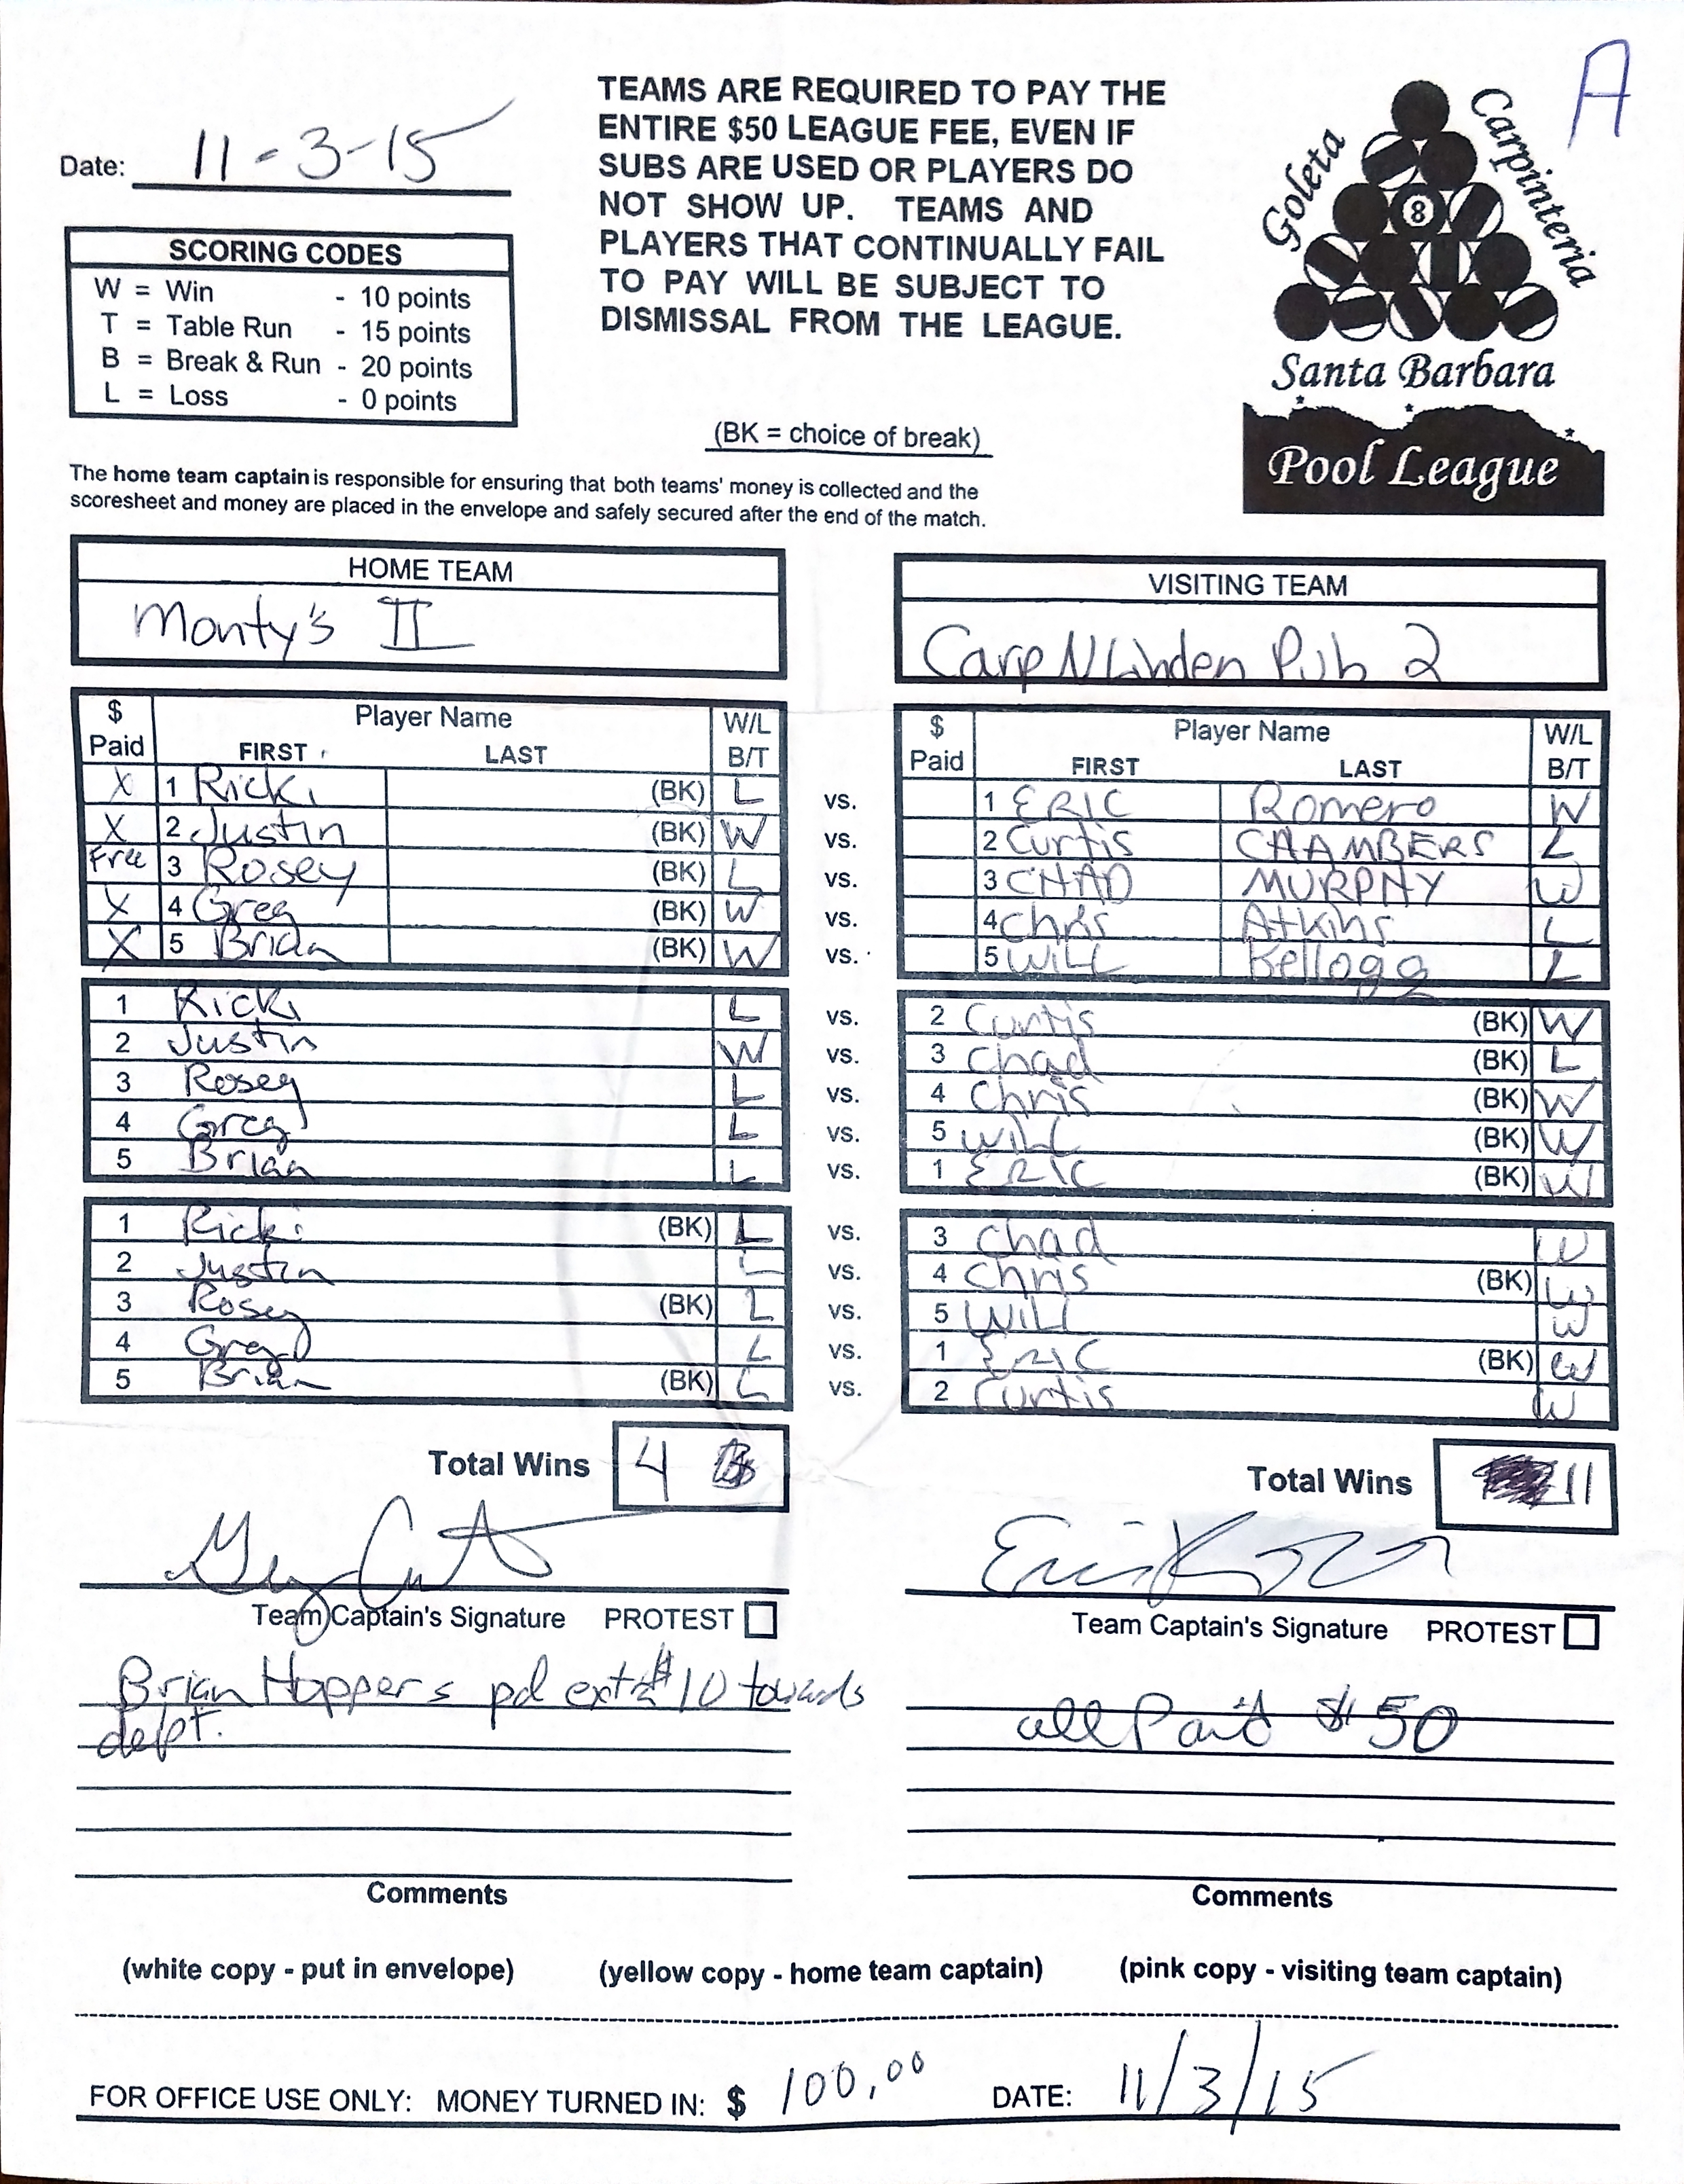 A
Date: 11-3-15
TEAMS ARE REQUIRED TO PAY THE
ENTIRE $50 LEAGUE FEE, EVEN IF
SUBS ARE USED OR PLAYERS DO
NOT SHOW UP. TEAMS AND
PLAYERS THAT CONTINUALLY FAIL
TO PAY WILL BE SUBJECT TO
DISMISSAL FROM THE LEAGUE.
Goleta
Carpinteria
8
Santa Barbara
Pool League
SCORING CODES
W = Win - 10 points
T = Table Run - 15 points
B = Break & Run - 20 points
L = Loss - 0 points
(BK = choice of break)
The home team captain is responsible for ensuring that both teams' money is collected and the
scoresheet and money are placed in the envelope and safely secured after the end of the match.
HOME TEAM
Monty's II
VISITING TEAM
Carp N Linden Pub 2
$ Paid Player Name FIRST LAST W/L B/T
$ Paid Player Name FIRST LAST W/L B/T
X 1 Ricki (BK) L vs. 1 ERIC Romero W
X 2 Justin (BK) W vs. 2 Curtis CHAMBERS L
Free 3 Rosey (BK) L vs. 3 CHAD MURPHY W
X 4 Greg (BK) W vs. 4 Chris Atkins L
X 5 Brian (BK) W vs. 5 WILL Kellogg L
1 Ricki L vs. 2 Curtis (BK) W
2 Justin W vs. 3 Chad (BK) L
3 Rosey L vs. 4 Chris (BK) W
4 Greg L vs. 5 WILL (BK) W
5 Brian L vs. 1 ERIC (BK) W
1 Ricki (BK) L vs. 3 Chad W
2 Justin L vs. 4 Chris (BK) W
3 Rosey (BK) L vs. 5 WILL W
4 Greg L vs. 1 ERIC (BK) W
5 Brian (BK) L vs. 2 Curtis W
Total Wins 4
Total Wins 11
Team Captain's Signature PROTEST
Team Captain's Signature PROTEST
Brian Hoppers pd extra $10 towards
dept.
all Paid $50
Comments
Comments
(white copy - put in envelope) (yellow copy - home team captain) (pink copy - visiting team captain)
FOR OFFICE USE ONLY: MONEY TURNED IN: $ 100.00 DATE: 11/3/15